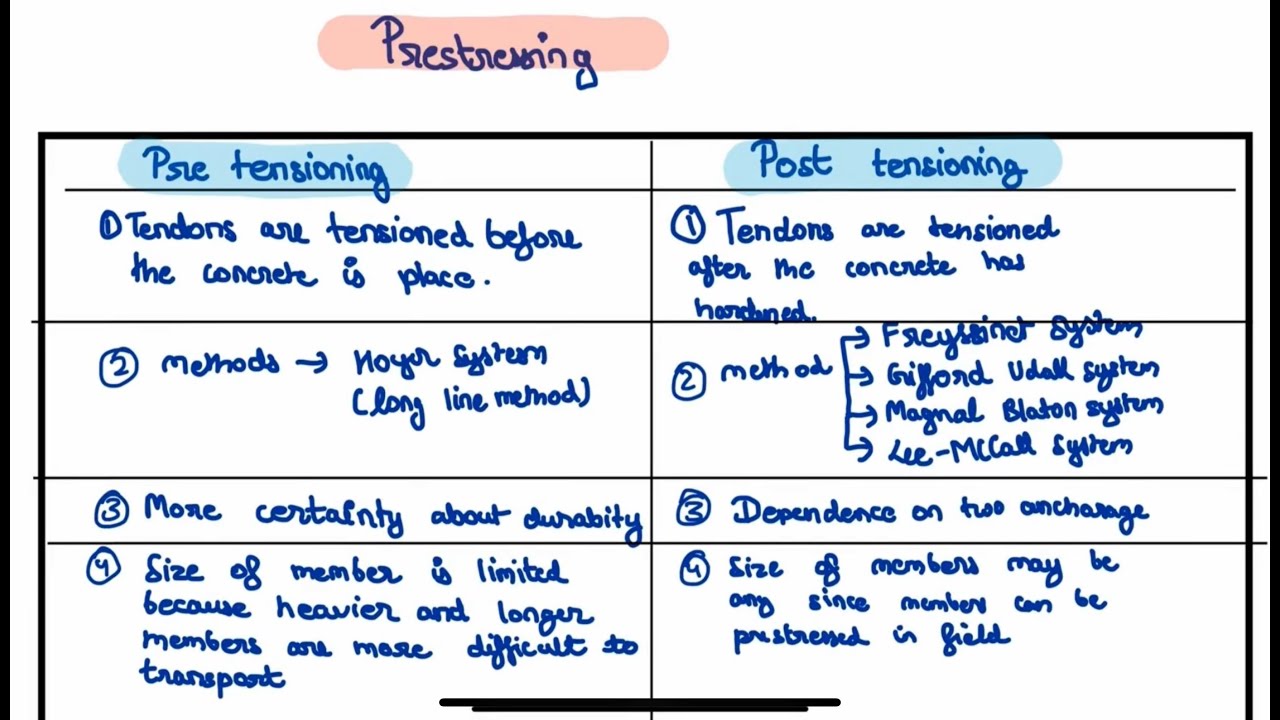 Prestressing
Pre tensioning
Post tensioning
① Tendons are tensioned before
the concrete is place.
① Tendons are tensioned
after the concrete has
hardned.
② methods → Hoyer System
(long line method)
② method → Freyssinet System
→ Gifford Udall system
→ Magnal Blaton system
→ Lee-McCall System
③ More certainty about durabity
③ Dependence on two ancharage
④ Size of member is limited
because heavier and longer
members are more difficult to
transport
④ Size of members may be
any since members can be
prestressed in field